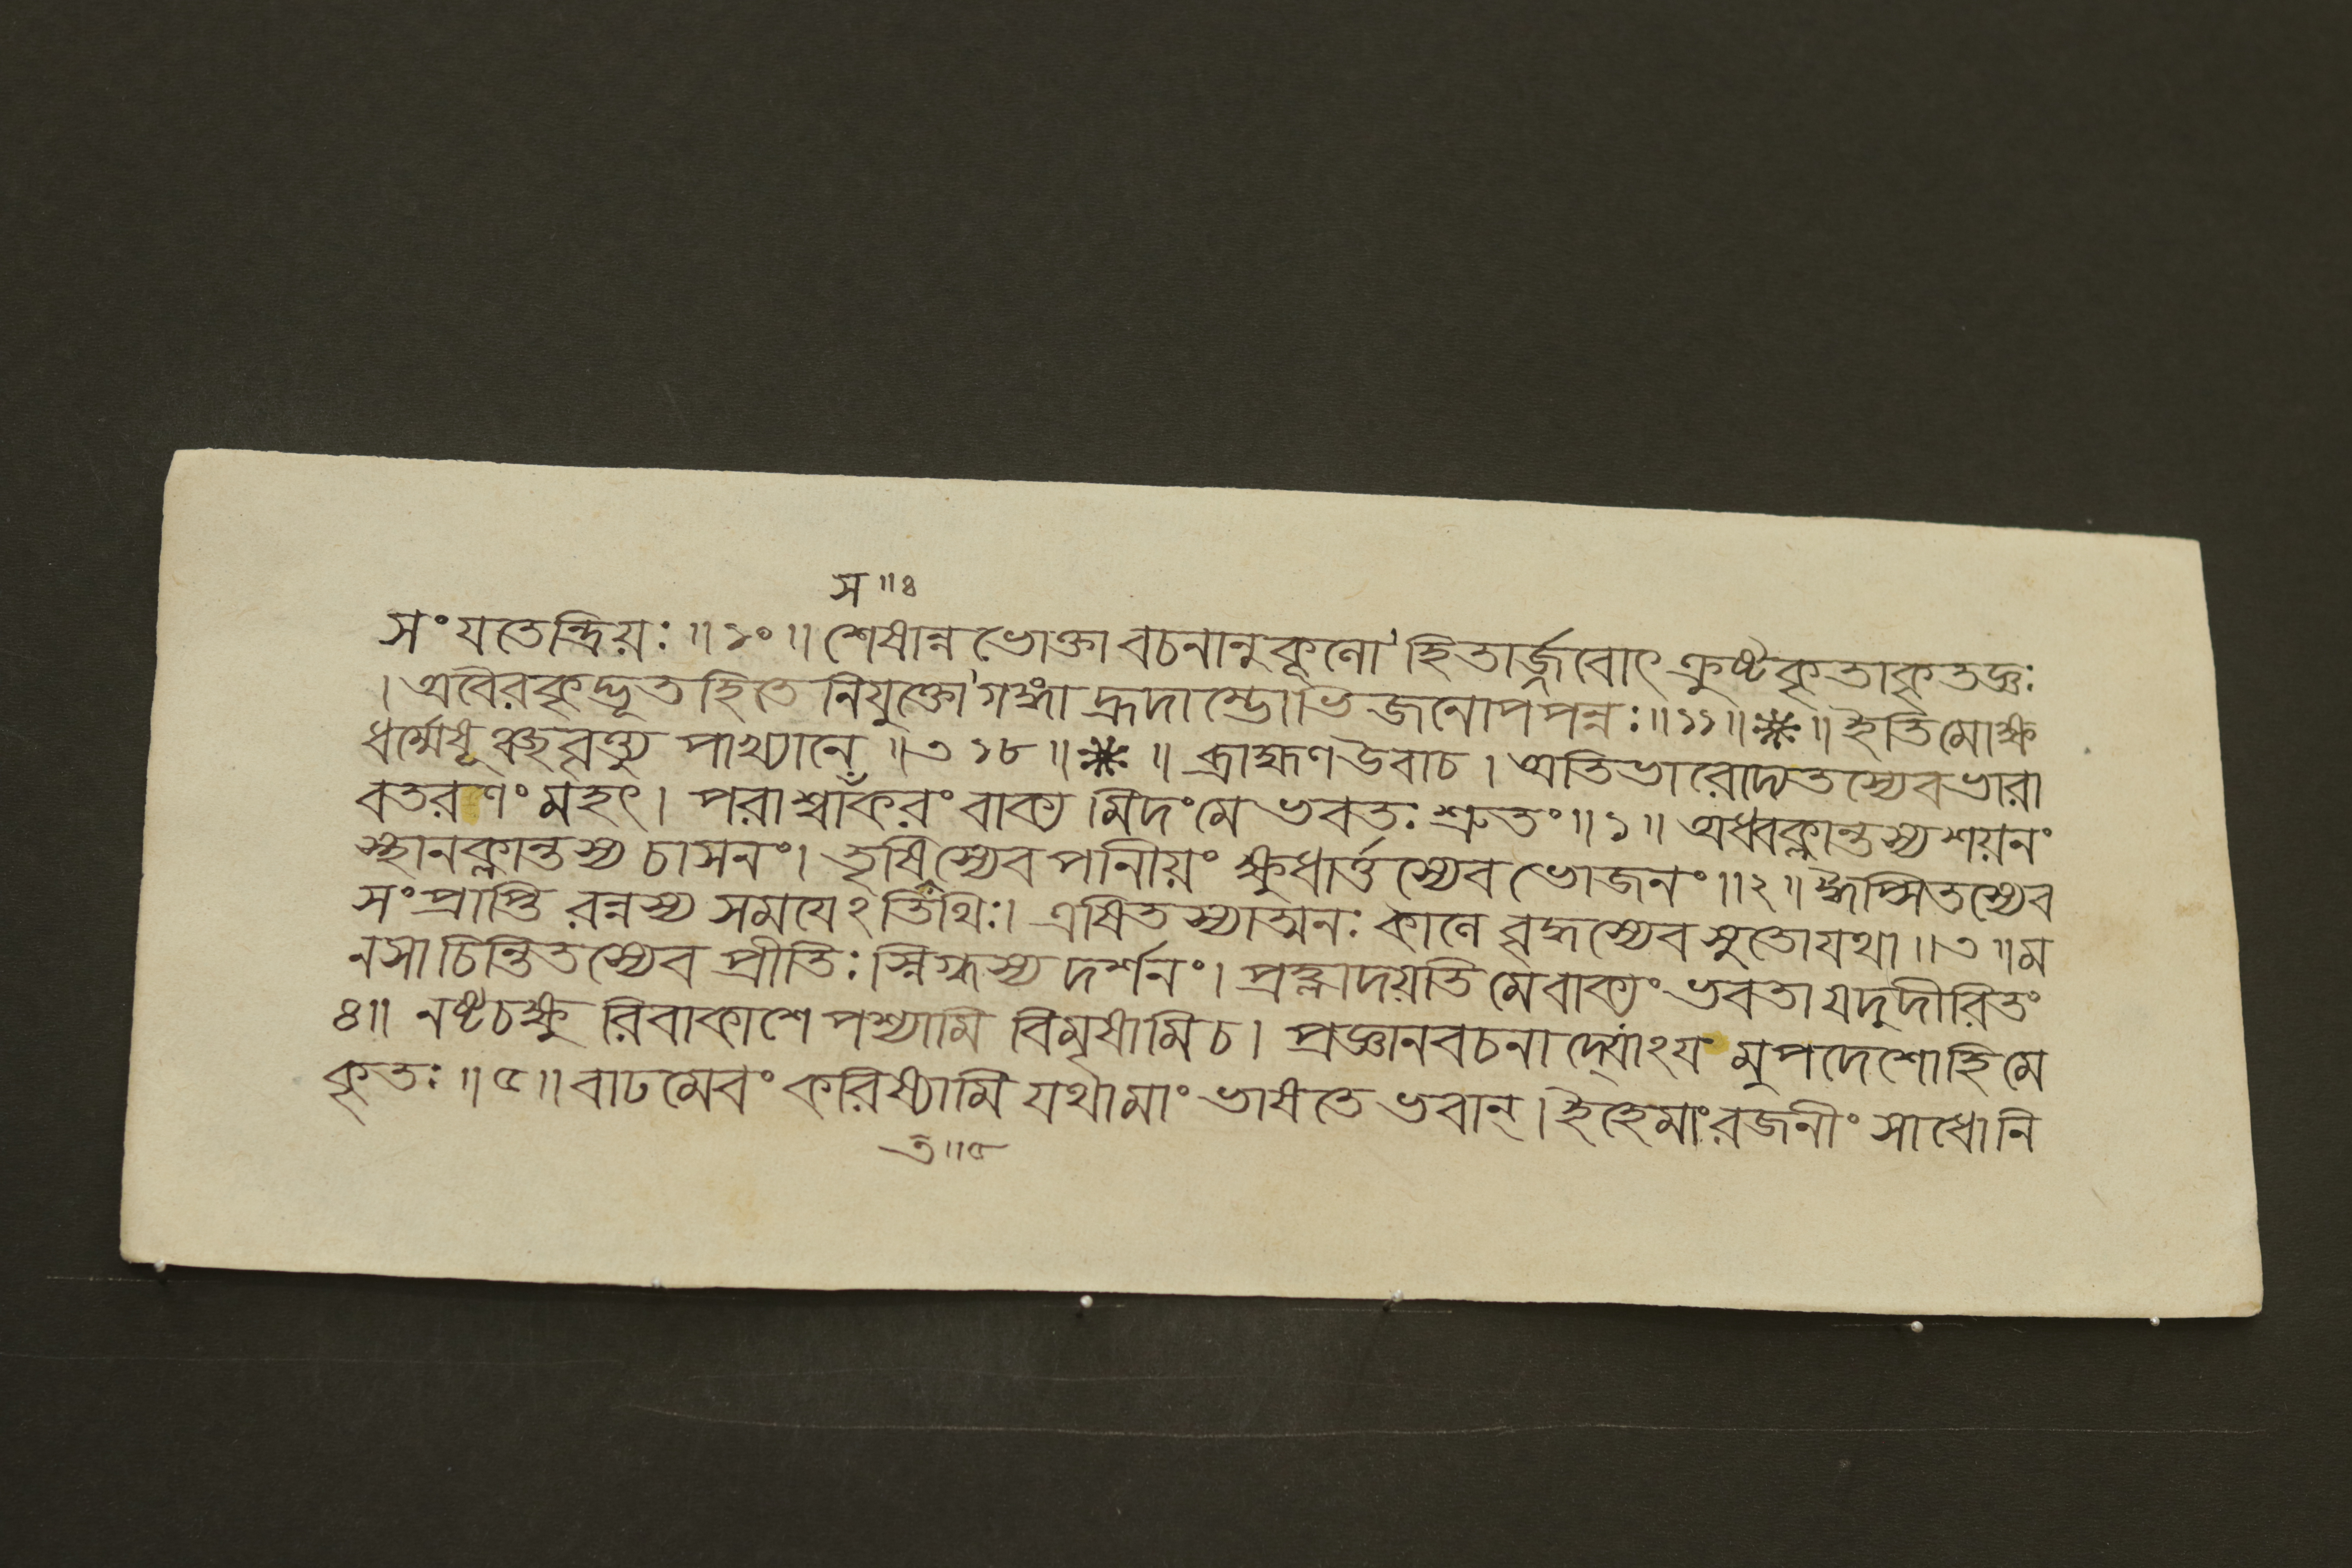 স॥৪
সংযতেন্দ্রিয়ঃ॥১০॥শেষান্নভোক্তাবচনানুকূণো'হিতার্জ্জবোৎক্রুষ্টকৃতাকৃতজ্ঞঃ
।অবৈরকৃদ্ভূতহিতে নিযুক্তো'গঙ্গাহ্রদাম্ভোভিজনোপপন্নঃ॥১১॥*॥ইতিমোক্ষ
ধর্ম্মেষূঞ্ছবৃত্ত্যু পাখ্যানে॥৩১৮॥*॥ ব্রাহ্মণউবাচ। অতিভারোদ্যতস্যেবভারা
বতরণং মহৎ। পরাশ্বাঁকরং বাক্য মিদংমে ভবতঃ শ্রুতং॥১॥ অধ্বক্লান্তস্যশয়নং
স্থানক্লান্তস্য চাসনং। তৃষিস্যেব পানীয়ং ক্ষুধার্ত্তস্যেব ভোজনং॥২॥ ঈপ্সিতস্যেব
সংপ্রাপ্তি রন্নস্য সময়েঽতিথিঃ। এষিতস্যাত্মনঃ কাণে বৃদ্ধস্যেব সুতোযথা॥৩॥ম
নসাচিন্তিতস্যেব প্রীতিঃ স্নিগ্ধস্য দর্শনং। প্রহ্লাদয়তি মেবাক্যং ভবতাযদুদীরিতং
৪॥ নষ্টচক্ষু রিবাকাশে পশ্যামি বিমৃষামিচ। প্রজ্ঞানবচনা মুপদেশোহিমে
কৃতঃ॥৫॥বাঢমেবং করিষ্যামি যথামাং ভাষতে ভবান্। ইহেমাংরজনীং সাধোনি
ত॥৫